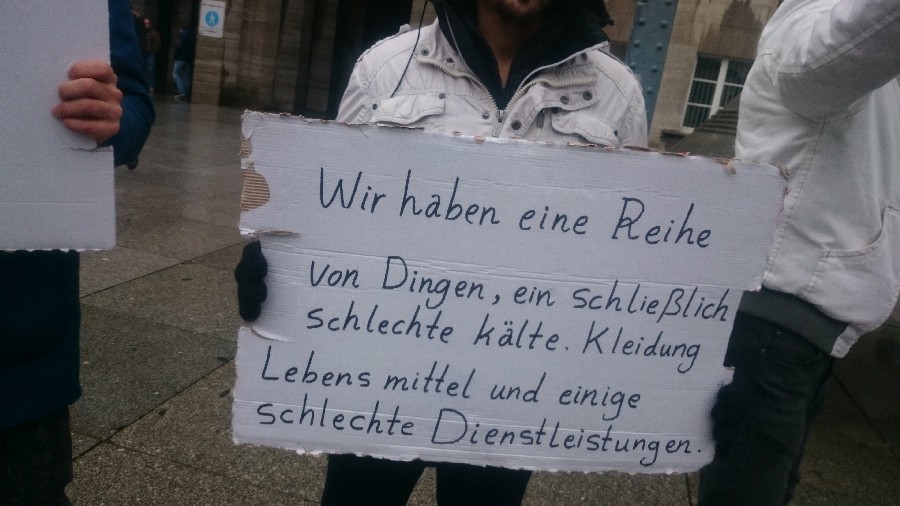 Wir haben eine Reihe
von Dingen, ein schließlich
schlechte kälte. Kleidung
Lebens mittel und einige
schlechte Dienstleistungen.